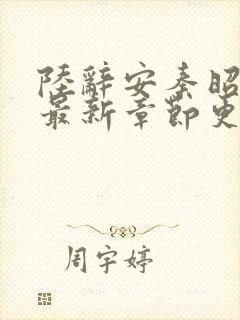 陸辭安秦昭
最新章節更
周宇婷